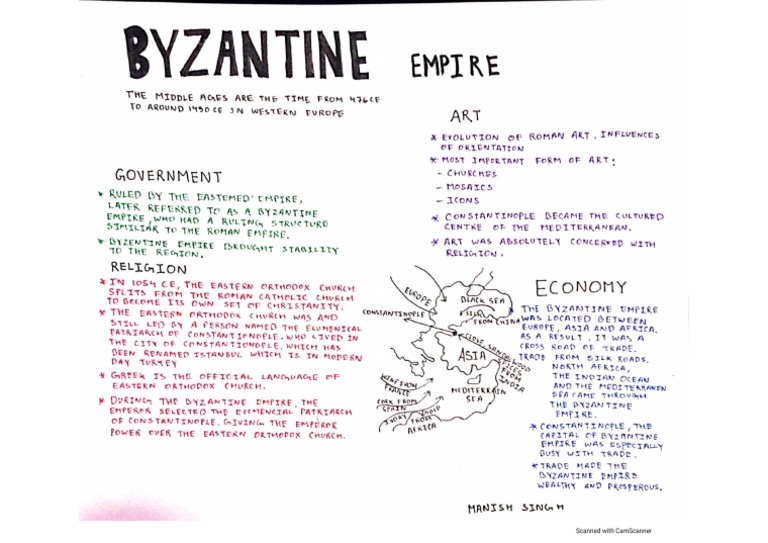 BYZANTINE EMPIRE
THE MIDDLE AGES ARE THE TIME FROM 476CE
TO AROUND 1450 CE IN WESTERN EUROPE
GOVERNMENT
* RULED BY THE EASTEMED EMPIRE,
LATER REFERRED TO AS A BYZANTINE
EMPIRE, WHO HAD A RULING STRUCTURE
SIMILIAR TO THE ROMAN EMPIRE.
* BYZENTINE EMPIRE BROUGHT STABILITY
TO THE REGION.
RELIGION
* IN 1054 C.E, THE EASTERN ORTHODOX CHURCH
SPLITS FROM THE ROMAN CATHOLIC CHURCH
TO BECOME ITS OWN SET OF CHRISTANITY.
* THE EASTERN ORTHODOX CHURCH WAS AND
STILL LED BY A PERSON NAMED THE ELUMENICAL
PATRIARCH OF CONSTANTIONOPLE. WHO LIVED IN
THE CITY OF CONSTANTIONPLE, WHICH HAS
BEEN RENAMED ISTANBUL WHICH IS IN MODERN
DAY TURKEY
* GREEK IS THE OFFICIAL LANGUAGE OF
EASTERN ORTHODOX CHURCH.
* DURING THE BYZANTINE EMPIRE, THE
EMPEROR SELECTED THE PATRIARCH
OF CONSTANTINOPLE. GIVING THE EMPEROR
POWER OVER THE EASTERN ORTHODOX CHURCH.
ART
* EVOLUTION OF ROMAN ART. INFLUENCES
OF ORIENTATION
* MOST IMPORTANT FORM OF ART:
- CHURCHES
- MOSAICS
- ICONS
* CONSTANTINOPLE BECAME THE CULTURED
CENTRE OF THE MEDITERRANEAN.
* ART WAS ABSOLUTELY CONCERNED WITH
RELIGION.
EUROPE
BLACK SEA
SILK
FROM CHINA
CONSTANTINOPLE
ASIA
FROM
INDIA
WINE FROM
FRANCE
MEDITERRAIN
SEA
CORK FROM
SPAIN
IVORY GOLD
FROM
AFRICA
ECONOMY
* THE BYZANTINE EMPIRE
WAS LOCATED BETWEEN
EUROPE, ASIA AND AFRICA.
AS A RESULT, IT WAS A
CROSS ROAD OF TRADE.
TRADE FROM SILK ROADS,
NORTH AFRICA,
THE INDIAN OCEAN
AND THE MEDITERRANEAN
SEA CAME THROUGH
THE BYZANTINE
EMPIRE.
* CONSTANTINOPLE, THE
CAPITAL OF BYZANTINE
EMPIRE WAS ESPECIALLY
BUSY WITH TRADE.
* TRADE MADE THE
BYZANTINE EMPIRE
WEALTHY AND PROSPEROUS.
MANISH SINGH
Scanned with CamScanner